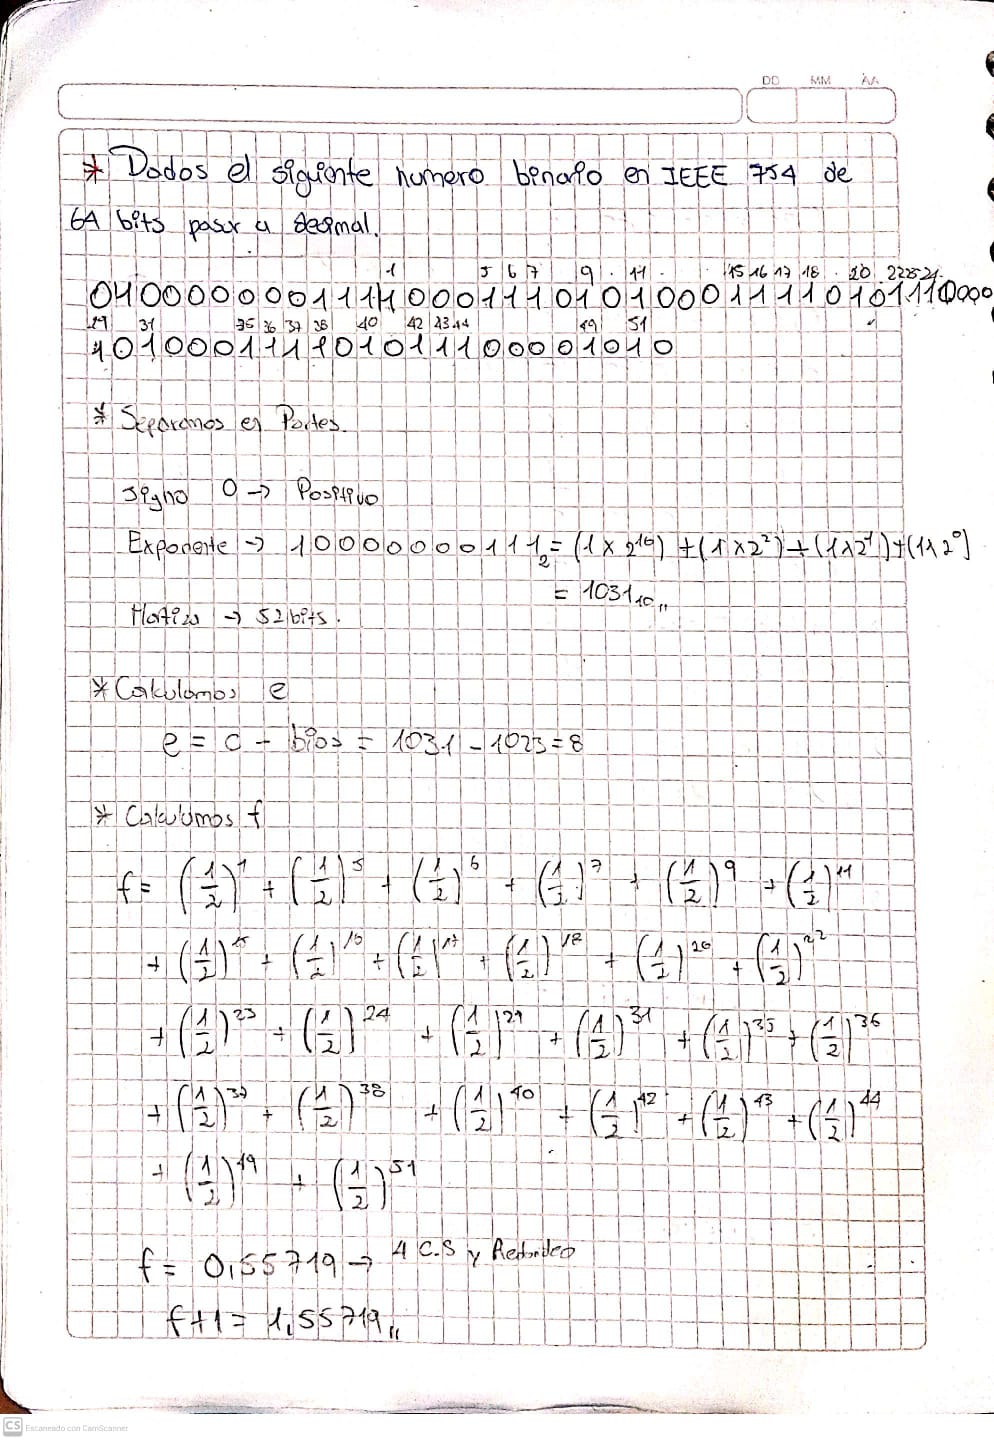 DD MM AA
* Dados el siguiente numero binario en IEEE 754 de
64 bits pasar a decimal.
1 5 6 7 9 11 15 16 17 18 20 22 23 24
0100000000111 1000111010100011110101110000
29 31 35 36 37 38 40 42 43 44 49 51
101000111101011100001010
* Separamos en Partes.
signo 0 → Positivo
Exponente → 10000000111₂ = (1 x 2¹⁰) + (1 x 2²) + (1 x 2¹) + (1 x 2⁰)
= 1031₁₀,,
Matiza → 52 bits.
* Calculamos e
e = c - bias = 1031 - 1023 = 8
* Calculamos f
f = (1/2)¹ + (1/2)⁵ + (1/2)⁶ + (1/2)⁷ + (1/2)⁹ + (1/2)¹¹
+ (1/2)¹⁵ + (1/2)¹⁶ + (1/2)¹⁷ + (1/2)¹⁸ + (1/2)²⁰ + (1/2)²²
+ (1/2)²³ + (1/2)²⁴ + (1/2)²⁹ + (1/2)³¹ + (1/2)³⁵ + (1/2)³⁶
+ (1/2)³⁷ + (1/2)³⁸ + (1/2)⁴⁰ + (1/2)⁴² + (1/2)⁴³ + (1/2)⁴⁴
+ (1/2)⁴⁹ + (1/2)⁵¹
f = 0,55719 → 4 C.S y Redondeo
f+1 = 1,55719,,
CS Escaneado con CamScanner